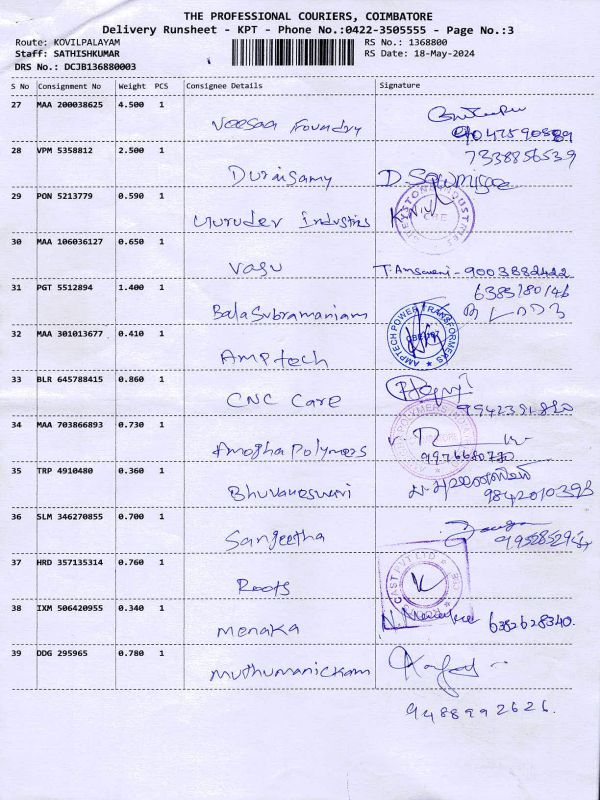 THE PROFESSIONAL COURIERS, COIMBATORE
Delivery Runsheet - KPT - Phone No.:0422-3505555 - Page No.:3
Route: KOVILPALAYAM RS No.: 1368800
Staff: SATHISHKUMAR RS Date: 18-May-2024
DRS No.: DCJB136880003
S No Consignment No Weight PCS Consignee Details Signature
27 MAA 200038625 4.500 1
Veesaa Foundry
28 VPM 5358812 2.500 1 7338856539
Duraisamy D Sowmiya
29 PON 5213779 0.590 1
Gurudev Industries
30 MAA 106036127 0.650 1
Vasu T. Amsaveni - 9003882422
31 PGT 5512894 1.400 1 6385180146
Balasubramaniam
32 MAA 301013677 0.410 1 AMPTECH POWER TRANSFORMERS
Amptech
33 BLR 645788415 0.860 1
CNC Care
34 MAA 703866893 0.730 1
Amogha Polymers 9976680770
35 TRP 4910480 0.360 1
Bhuvaneswari 9842010393
36 SLM 346270855 0.700 1
Sangeetha
37 HRD 357135314 0.760 1 CAST PVT LTD
Roots
38 IXM 506420955 0.340 1
Menaka N. Menaka 6382628340.
39 DDG 295965 0.780 1
Muthumanickam
9488992626.